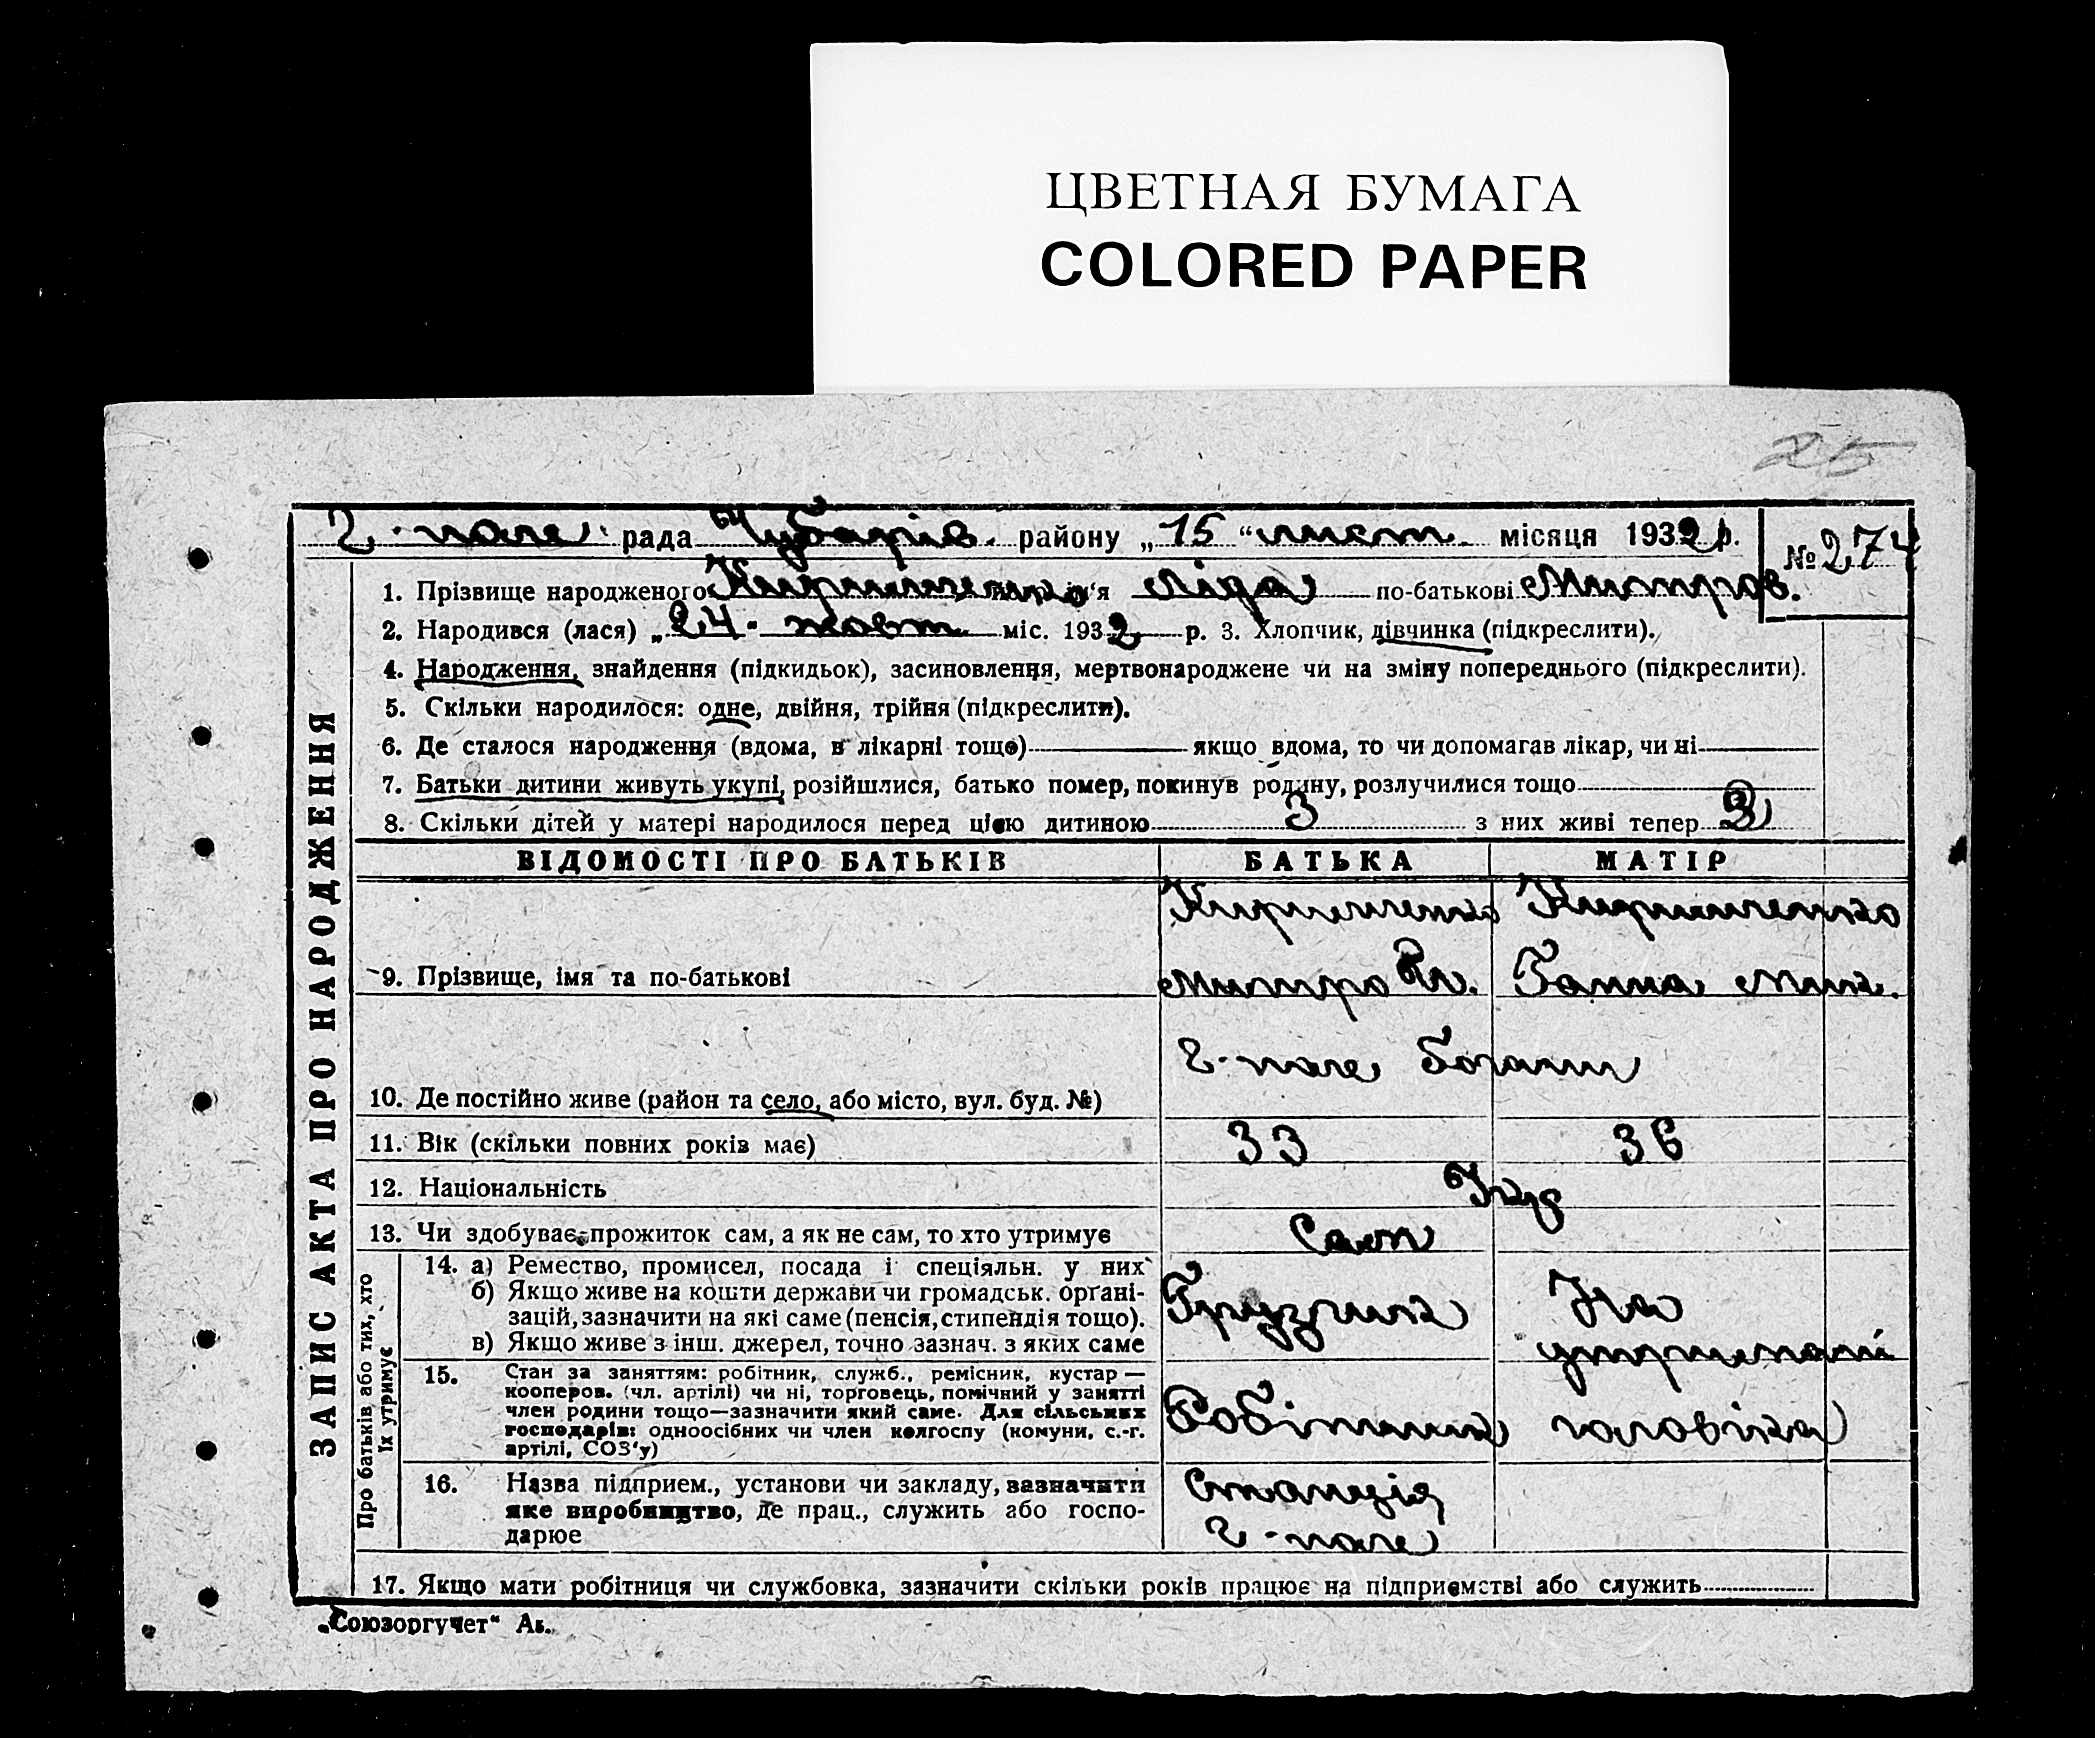 ЦВЕТНАЯ БУМАГА
COLORED PAPER
25
Г-поле рада Чубарів. району „15“ лист. місяця 1932 р. № 274
1. Прізвище народженого Кириченко ім'я Ліда по-батькові Митров.
2. Народився (лася) „24“ жовт. міс. 1932 р. 3. Хлопчик, дівчинка (підкреслити).
4. Народження, знайдення (підкидьок), засиновлення, мертвонароджене чи на зміну попереднього (підкреслити).
5. Скільки народилося: одне, двійня, трійня (підкреслити).
6. Де сталося народження (вдома, в лікарні тощо) якщо вдома, то чи допомагав лікар, чи ні
7. Батьки дитини живуть укупі, розійшлися, батько помер, покинув родину, розлучилися тощо
8. Скільки дітей у матері народилося перед цією дитиною 3 з них живі тепер 3
ВІДОМОСТІ ПРО БАТЬКІВ БАТЬКА МАТІР
Кириченко Кириченко
9. Прізвище, імя та по-батькові Митро Ганна
Г-поле
10. Де постійно живе (район та село, або місто, вул. буд. №)
11. Вік (скільки повних років має) 33 36
12. Національність Укр
13. Чи здобуває прожиток сам, а як не сам, то хто утримує Сам
14. а) Ремество, промисел, посада і спеціяльн. у них
б) Якщо живе на кошти держави чи громадськ. органі-
зацій, зазначити на які саме (пенсія, стипендія тощо).
в) Якщо живе з інш. джерел, точно зазнач. з яких саме
Грузчик На
утриманні
15. Стан за заняттям: робітник, служб., ремісник, кустар —
кооперов. (чл. артілі) чи ні, торговець, помічний у занятті
член родини тощо—зазначити який саме. Для сільських
господарів: одноосібних чи член колгоспу (комуни, с.-г.
артілі, СОЗ'у)
Робітник чоловіка
16. Назва підприєм., установи чи закладу, зазначити
яке виробництво, де прац., служить або госпо-
дарює
Станція
Г-поле
17. Якщо мати робітниця чи службовка, зазначити скільки років працює на підприємстві або служить
ЗАПИС АКТА ПРО НАРОДЖЕННЯ
Про батьків або тих, хто
їх утримує
„Союзоргучет“